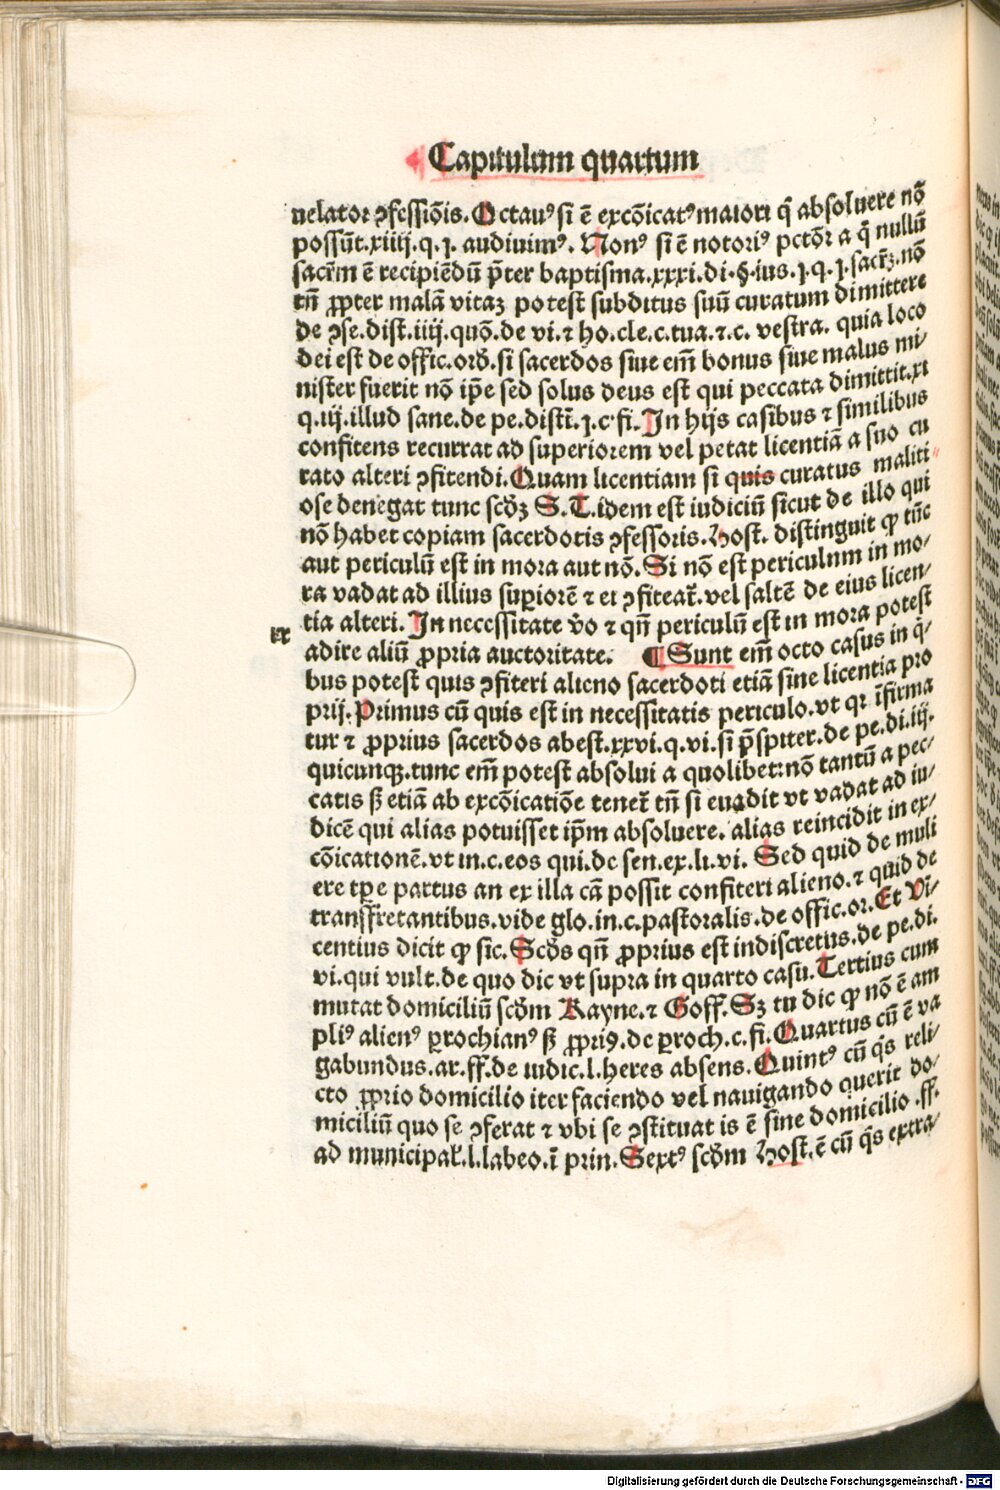 Capitulum quartum
uelator ꝯfessiõis. Octauꝰ si ẽ excõicatꝰ maiori q̃ absoluere nõ
possũt.xiiij.q.j. audiuimꝰ. Nonꝰ si ẽ notoriꝰ pctõr a q̃ nullũ
sacr̃m ẽ recipiẽdũ p̃ter baptisma.xxxi.di.§.ius.j.q.j.sacr̃ꝫ.nõ
tñ ꝓpter malã vitaꝫ potest subditus suũ curatum dimittere
de ꝯse.dist.iiij.quõ.de vi.⁊ ho.cle.c.tua.⁊.c. vestra. quia loco
dei est de offic.ord̃.si sacerdos siue em̃ bonus siue malus mi/
nister fuerit nõ ip̃e sed solus deus est qui peccata dimittit.xt
q.iij.illud sane.de pe.disti̇̃.j.c.fi. In hijs casibus ⁊ similibus
confitens recurrat ad superiorem vel petat licentiã a suo cu
rato alteri ꝯfitendi. Quam licentiam si quis curatus maliti⸗
ose denegat tunc scd̃ꝫ S.T.idem est iudiciũ sicut de illo qui
nõ habet copiam sacerdotis ꝯfessoris. Host. distinguit ꝙ tũc
aut periculũ est in mora aut nõ. Si nõ est periculum in mo/
ra vadat ad illius suꝑiorẽ ⁊ ei ꝯfiteat᷑.vel saltẽ de eius licen/
tia alteri. In necessitate v̉o ⁊ qñ periculũ est in mora potest
ix
adire aliũ ꝓpria auctoritate. ¶ Sunt em̃ octo casus in q̃/
bus potest quis ꝯfiteri alieno sacerdoti etiã sine licentia pro
prij. Primus cũ quis est in necessitatis periculo.vt qꝛ ĩfirma
tur ⁊ ꝓprius sacerdos abest.xxvi.q.vi.si p̃sꝑiter.de pe.di.iij.
quicunqꝫ.tunc em̃ potest absolui a quolibet:nõ tantũ a pec/
catis ꝭ etiã ab excõicatiõe tenet᷑ tñ si euadit vt vadat ad iu/
dicẽ qui alias potuisset ip̃m absoluere. alias reincidit in ex/
cõicationẽ.vt in.c.eos qui.de sen.ex.li.vi. Sed quid de muli
ere tꝑe partus an ex illa cã possit confiteri alieno.⁊ quid de
transfretantibus.vide glo.in.c.pastoralis.de offic.or. Et Vi/
centius dicit ꝙ sic. Scd̃s qñ ꝓprius est indiscretus.de pe.di.
vi.qui vult.de quo dic vt supra in quarto casu. Tertius cum
mutat domiciliũ scd̃m Rayne.⁊ Goff. Sꝫ tu dic ꝙ nõ ẽ am
pliꝰ alienꝰ ꝑrochianꝰ ꝭ ꝓpriꝰ.de ꝑroch.c.fi. Quartus cũ ẽ va
gabundus.ar.ff.de iudic.l.heres absens. Quintꝰ cũ q̃s reli/
cto ꝓprio domicilio iter faciendo vel nauigando querit do/
miciliũ quo se ꝯferat ⁊ vbi se ꝯstituat is ẽ sine domicilio .ff.
ad municipal᷑.l.labeo.ĩ prin. Sextꝰ scd̃m Host.ẽ cũ q̃s extra/
Digitalisierung gefördert durch die Deutsche Forschungsgemeinschaft - DFG